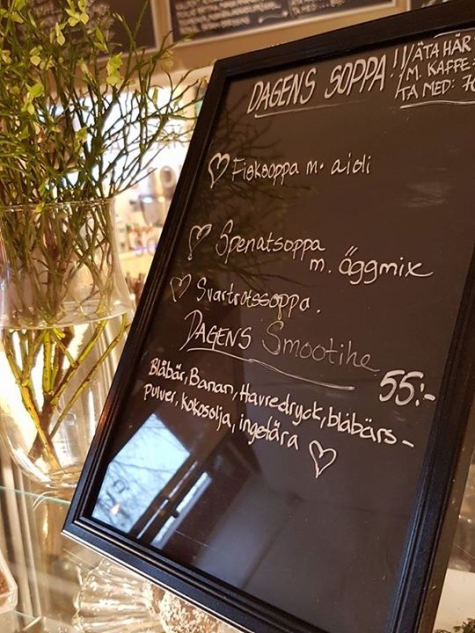 DAGENS SOPPA!
ÄTA HÄR
M. KAFFE
TA MED:
Fisksoppa m. aioli
Spenatsoppa
m. äggmix
Svartrotssoppa.
DAGENS Smootihe
55:-
Blåbär, Banan, Havredryck, blåbärs-
pulver, kokosolja, ingefära